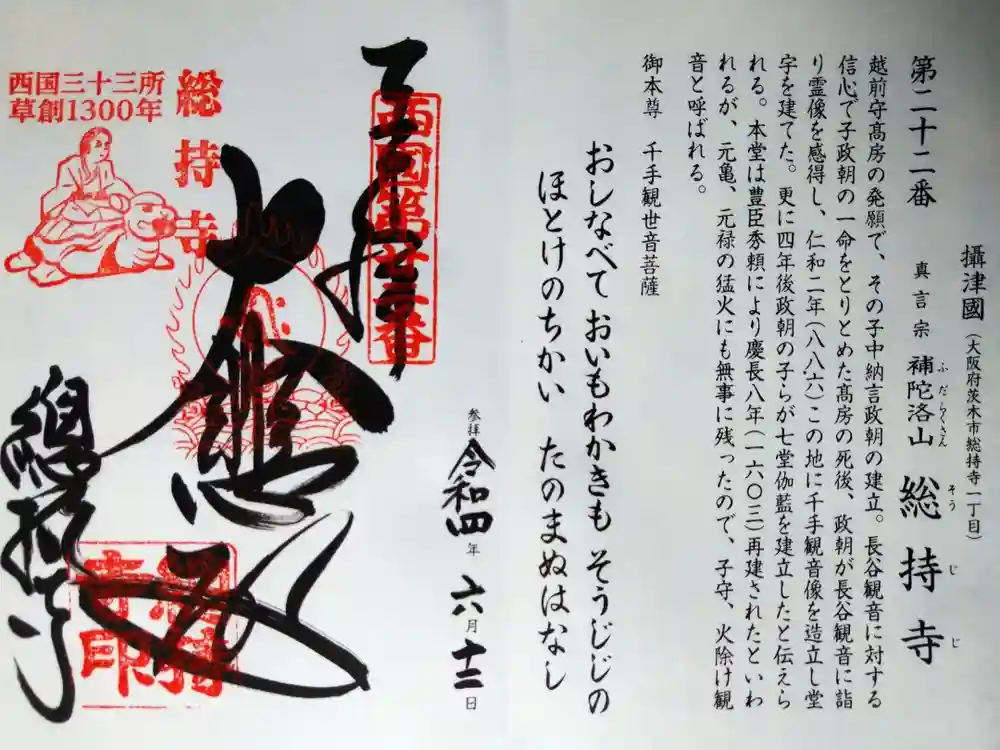 攝津國（大阪府茨木市総持寺一丁目）
第二十二番 真言宗 補陀洛山 総持寺
ふだらくさん そうじじ
越前守髙房の発願で、その子中納言政朝の建立。長谷観音に対する
信心で子政朝の一命をとりとめた髙房の死後、政朝が長谷観音に詣
り霊像を感得し、仁和二年（八八六）この地に千手観音像を造立し堂
宇を建てた。更に四年後政朝の子らが七堂伽藍を建立したと伝えら
れる。本堂は豊臣秀頼により慶長八年（一六〇三）再建されたといわ
れるが、元亀、元禄の猛火にも無事に残ったので、子守、火除け観
音と呼ばれる。
御本尊 千手観世音菩薩
おしなべて おいもわかきも そうじじの
ほとけのちかい たのまぬはなし
参拝 令和四年 六月十二日
西国第廿二番
大悲殿
総持寺
西国三十三所
草創1300年
總持寺